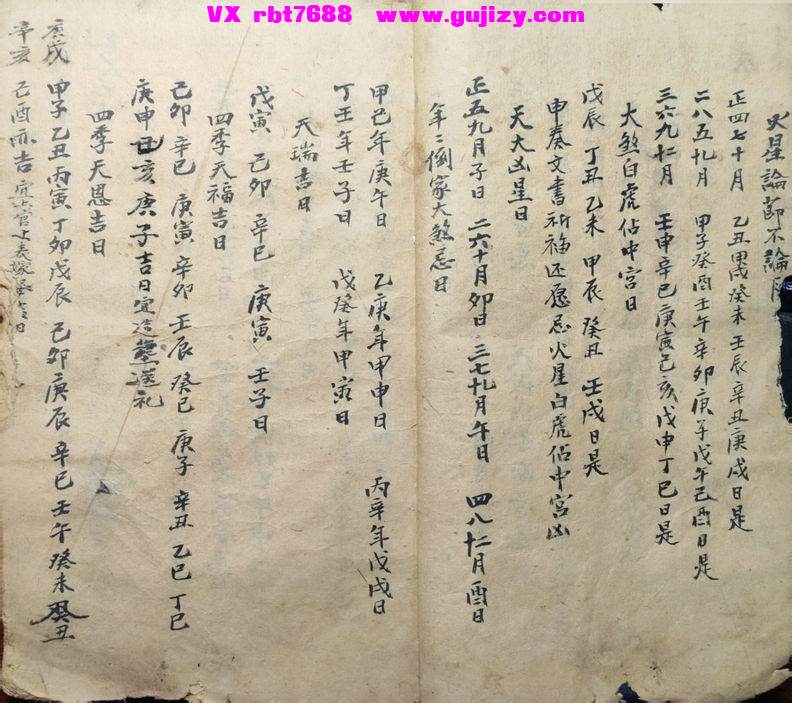 VX rbt7688 www.gujizy.com
火星論節不論月
正四七十月 乙丑甲戌癸未壬辰辛丑庚戌日是
二八五十九月 甲子癸酉壬午辛卯庚子戊午己酉日是
三六九十二月 壬申辛巳庚寅己亥戊申丁巳日是
大煞白虎佔中宮日
戊辰 丁丑 乙未 甲辰 癸丑 壬戌日是
申奏文書祈福还愿忌火星白虎佔中宮凶
天大凶星日
正五九月子日 二六十月卯日 三七十九月午日 四八十二月酉日
年二倒家大煞忌日
甲己年庚午日 乙庚年甲申日 丙辛年戊戌日
丁壬年壬子日 戊癸年甲寅日
天瑞吉日
戊寅 己卯 辛巳 庚寅 壬子日
四季天福吉日
己卯 辛巳 庚寅 辛卯 壬辰 癸巳 庚子 辛丑 乙巳 丁巳
庚申 己亥 庚子吉日宜送礼
四季天恩吉日
甲子乙丑丙寅丁卯戊辰 己卯庚辰辛巳壬午癸未癸丑
庚戌
辛亥 己酉亦吉 宜 官上表嫁 吉日